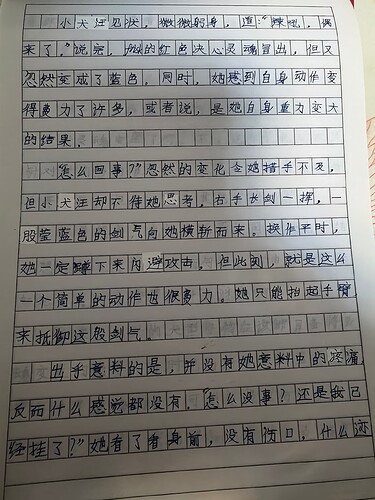 小犬汪见状，微微躬身，道："辣吼，偶
来了。"说完，她的红色决心灵魂冒出，但又
忽然变成了蓝色。同时，她感到自身动作变
得费力了许多，或者说，是她自身重力变大
的结果。
"怎么回事？"忽然的变化令她措手不及，
但小犬汪却不待她思考，右手长剑一挥，一
股莹蓝色的剑气向她横斩而来。换作平时，
她一定蹲下来闪避攻击。但此刻，就是这么
一个简单的动作也很费力。她只能抬起手臂
来抵御这股剑气。
出乎意料的是，并没有她意料中的疼痛，
反而什么感觉都没有。"怎么没事？还是我已
经挂了？"她看了看身前，没有伤口，什么迹